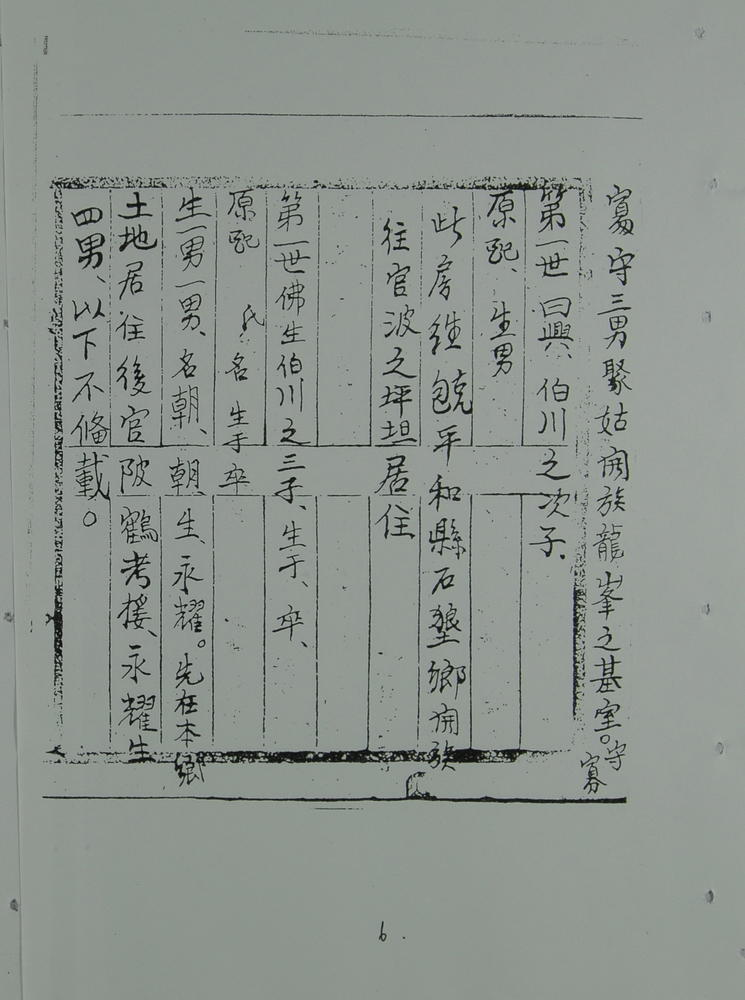 寡守三男聚姑開族龍峯之基室。守寡
第一世曰興、伯川之次子、
原配、生男
此房往 平和縣石 鄉開族
往官波之坪坦居住
第一世佛生伯川之三子、生于、卒、
原配 氏名生于卒
生一男一男、名朝、朝生、永耀。先在本鄉
土地居住後官陂鶴考樓、永耀生
四男、以下不俻載。
6.